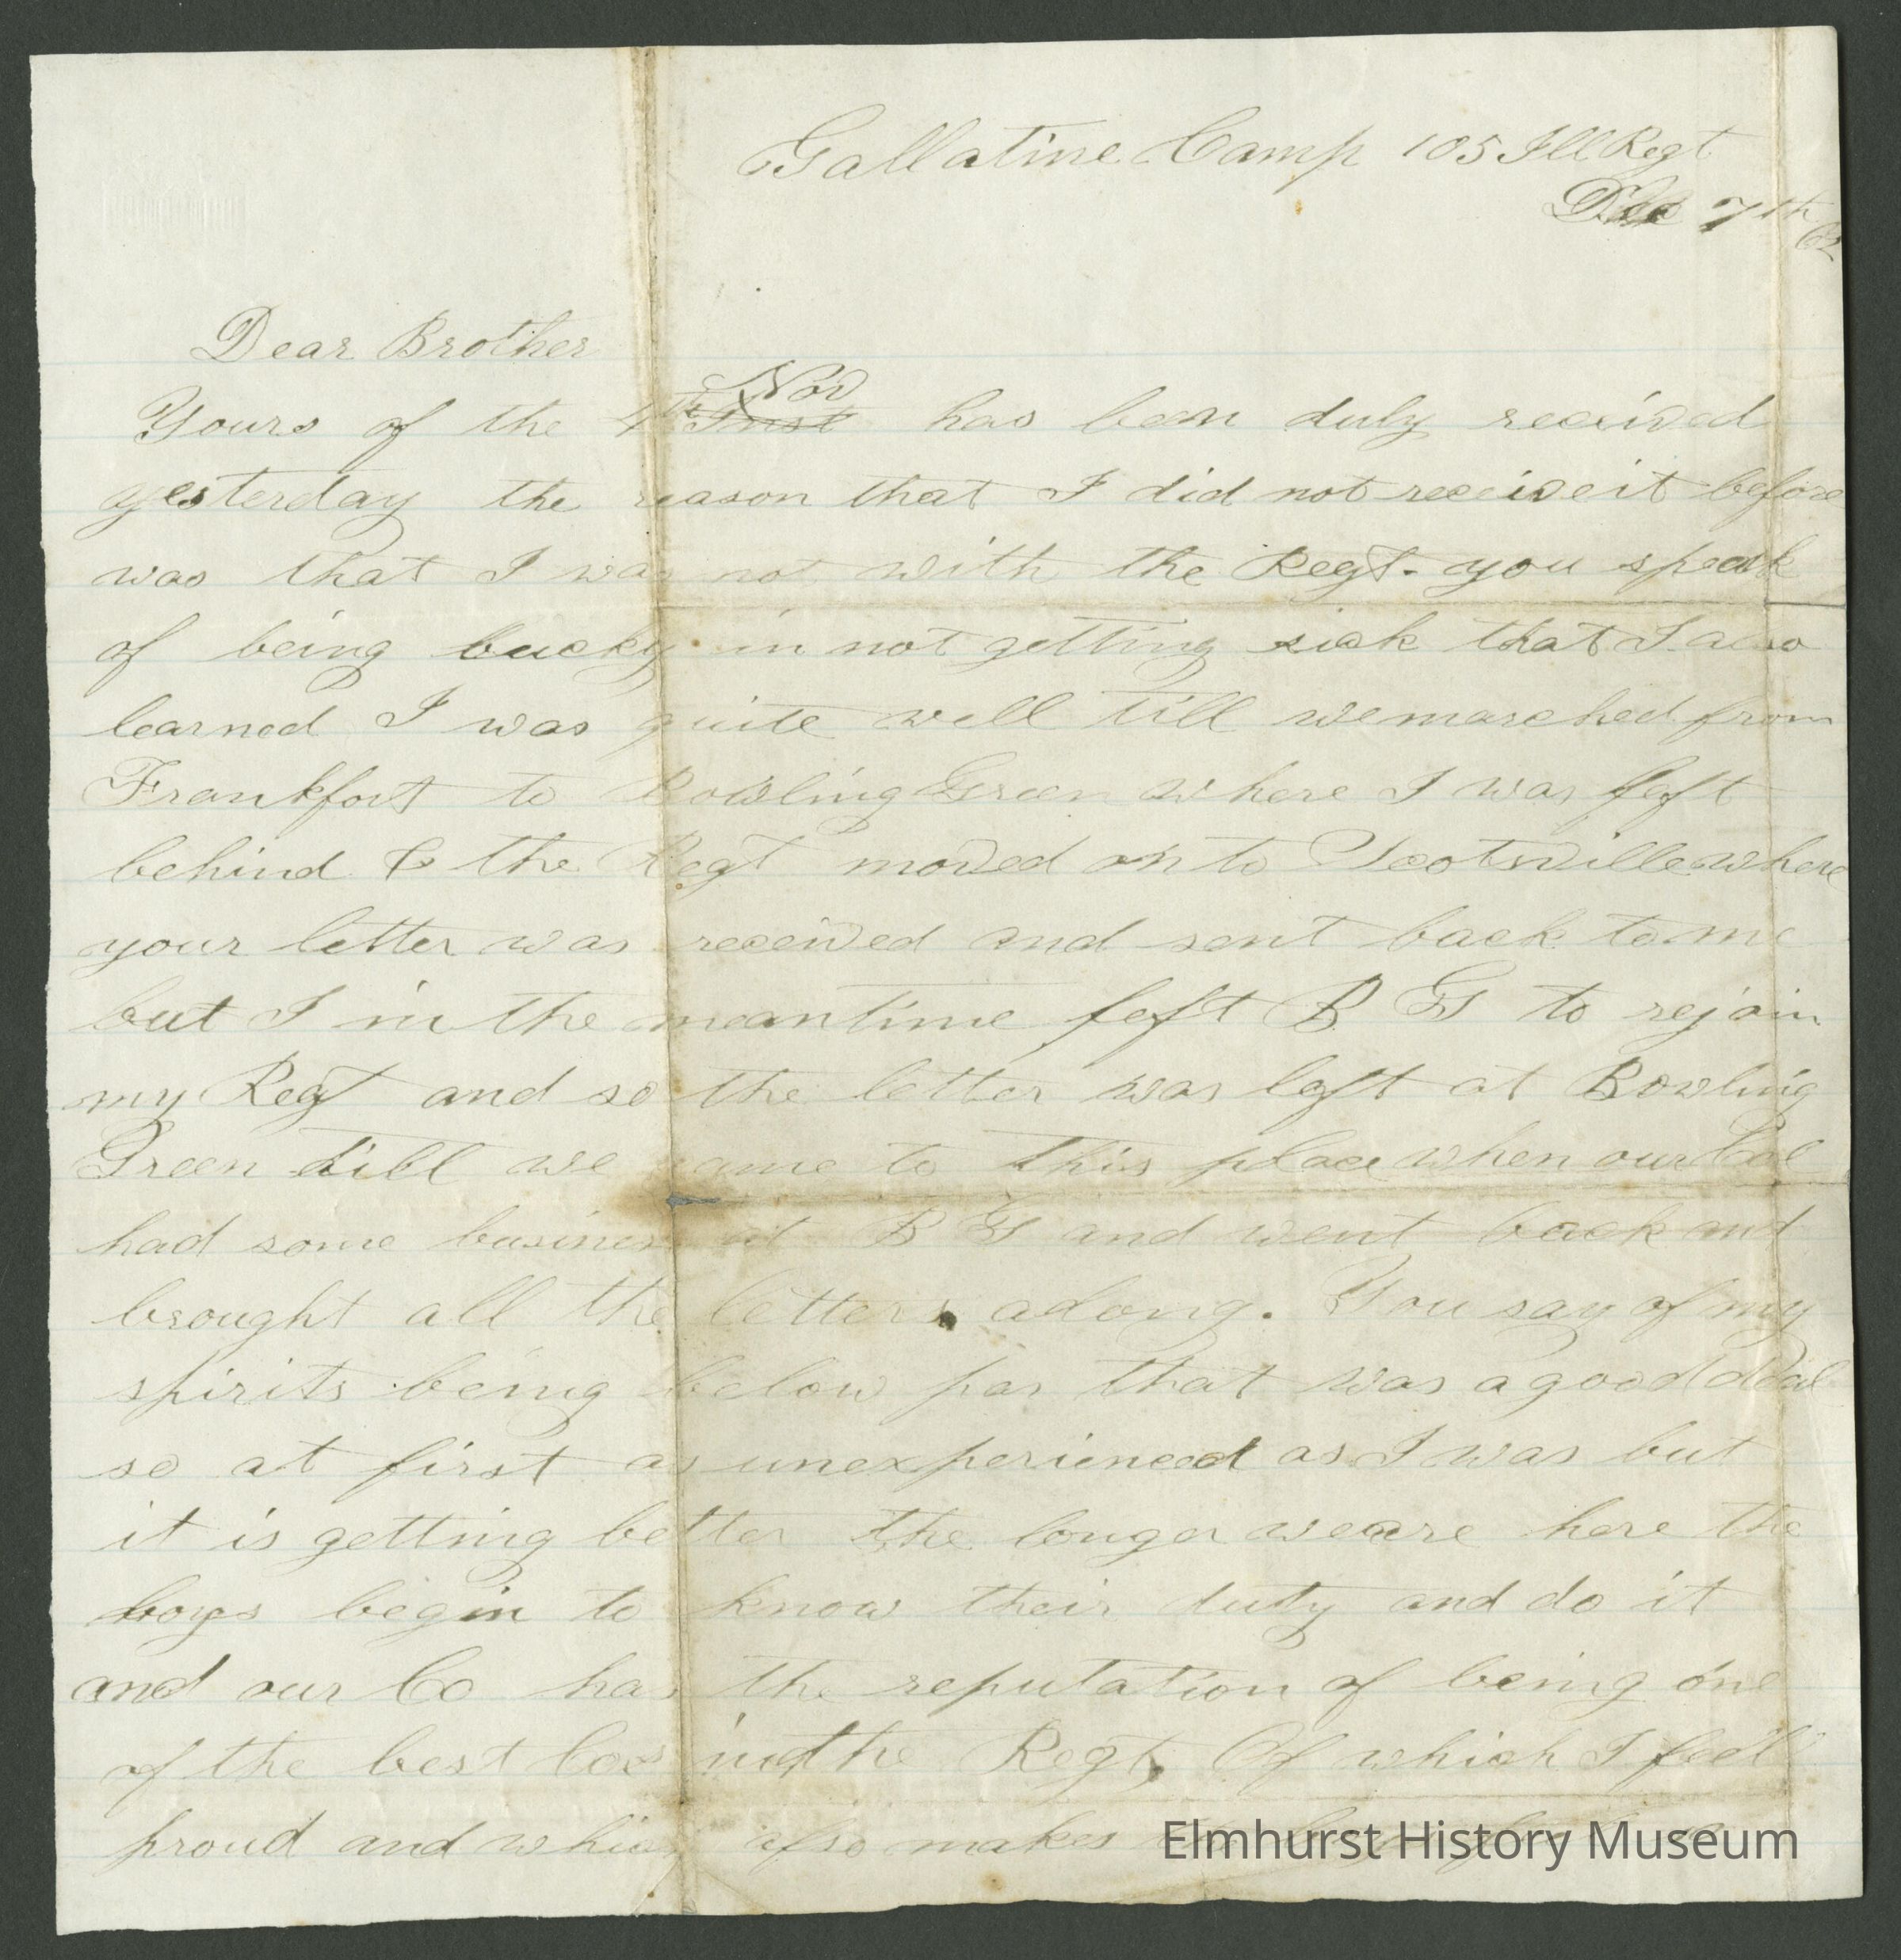 Gallatine Camp 105 Ill Regt
Dec 7th 62
Dear Brother
Nov
Yours of the 4th Inst has been duly received
yesterday the reason that I did not receive it before
was that I was not with the Regt. you speak
of being lucky in not getting sick that I also
learned I was quite well till we marched from
Frankfort to Bowling Green where I was left
behind & the Regt moved on to Scotsville where
your letter was received and sent back to me
but I in the meantime left B G to rejoin
my Regt and so the letter was left at Bowling
Green till we came to this place when our Col
had some business at B G and went back and
brought all the letters along. You say of my
spirits being below par that was a good deal
so at first as unexperienced as I was but
it is getting better the longer we are here the
boys begin to know their duty and do it
and our Co has the reputation of being one
of the best Cos in the Regt. Of which I feel
proud and which also makes
Elmhurst History Museum